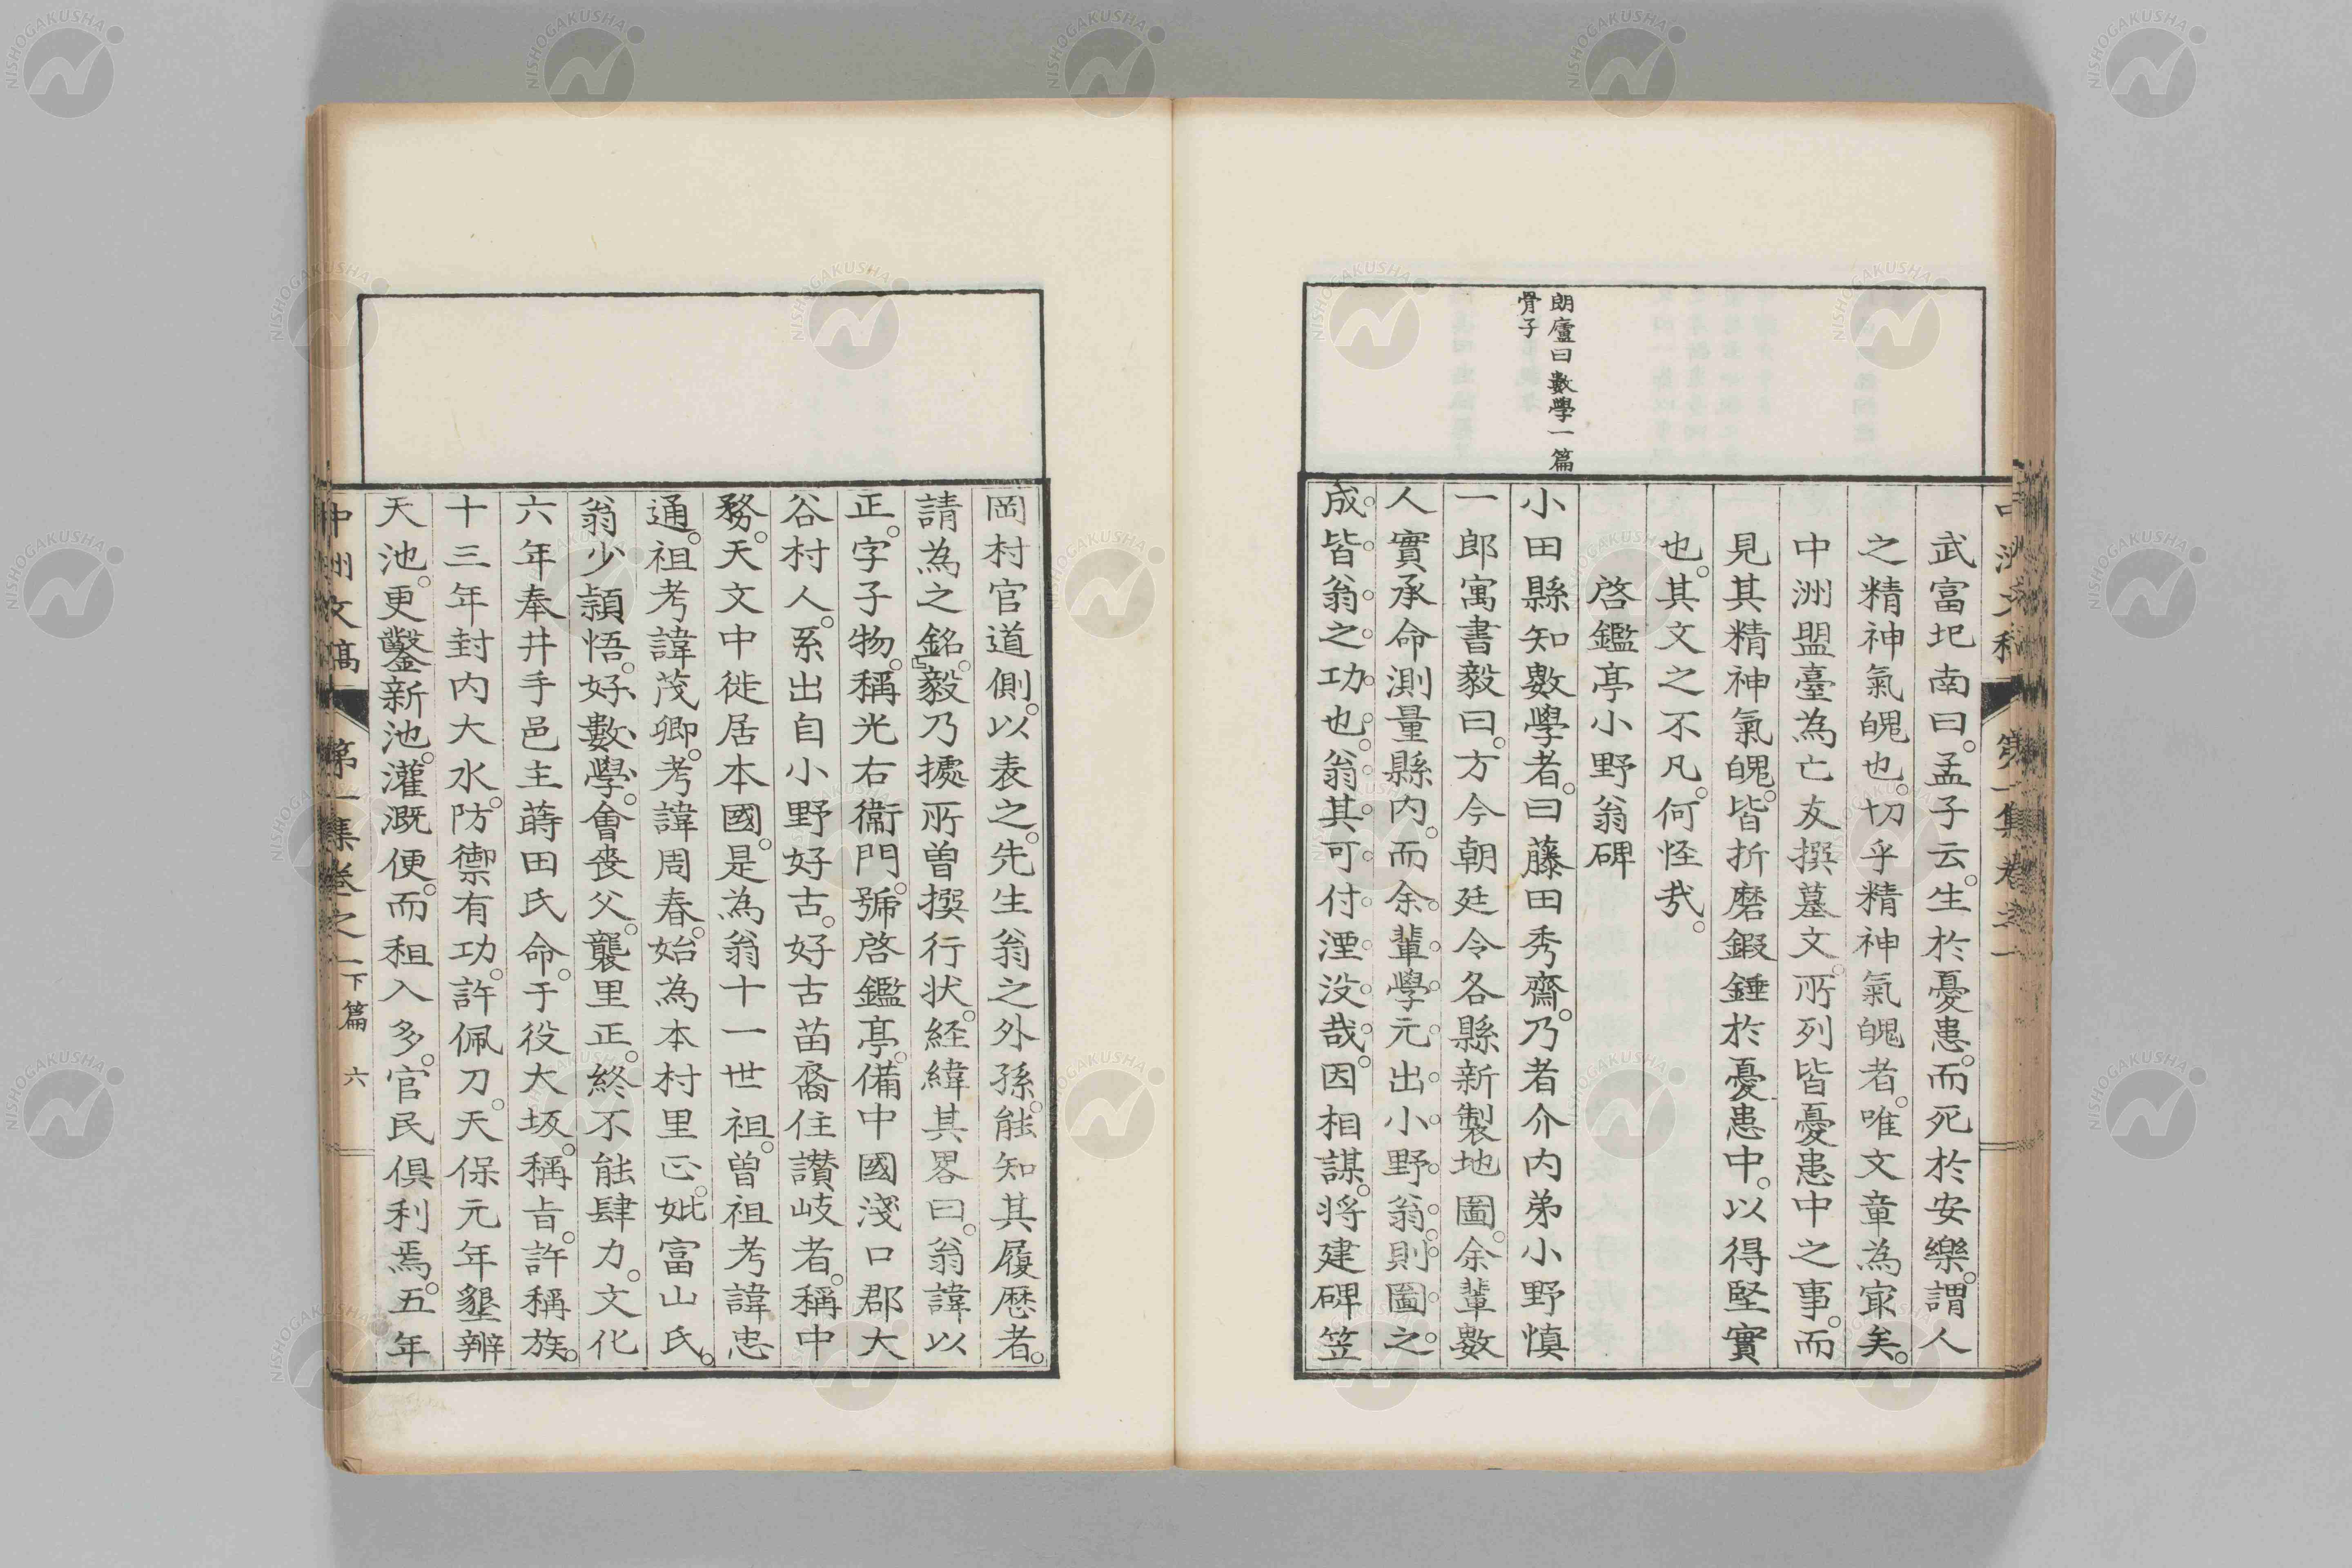 朗廬曰數學一篇
骨子
武富圯南曰。孟子云。生於憂患。而死於安樂。謂人
之精神氣魄也。切乎精神氣魄者。唯文章為㝡矣。
中洲盟臺為亡友撰墓文。所列皆憂患中之事。而
見其精神氣魄。皆折磨鍜錘於憂患中。以得堅實
也。其文之不凡。何怪哉。
啓鑑亭小野翁碑
小田縣知數學者。曰藤田秀齋。乃者介内弟小野慎
一郎寓書毅曰。方今朝廷令各縣新製地圖。余輩數
人實承命測量縣内。而余輩學元出小野翁。則圖之
成。皆翁之功也。翁其可付湮没哉。因相謀。将建碑笠
岡村官道側。以表之。先生翁之外孫。能知其履歴者。
請為之銘。』毅乃據所曽撰行状。経緯其畧曰。翁諱以
正。字子物。稱光右衞門。號啓鑑亭。備中國淺口郡大
谷村人。系出自小野好古。好古苗裔住讃岐者。稱中
務。天文中徙居本國。是為翁十一世祖。曽祖考諱忠
通。祖考諱茂卿。考諱周春。始為本村里正。妣富山氏。
翁少頴悟。好數學。會喪父。襲里正。終不能肆力。文化
六年奉井手邑主蒔田氏命。于役大坂。稱旨。許稱族。
十三年封内大水。防禦有功。許佩刀。天保元年墾辦
天池。更鑿新池。灌漑便。而租入多。官民倶利焉。五年
中洲文稿 第一集卷之一下篇 六